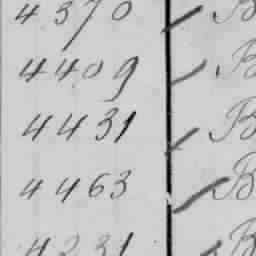 4370 B
4409 B
4431 B
4463 B
4231 B